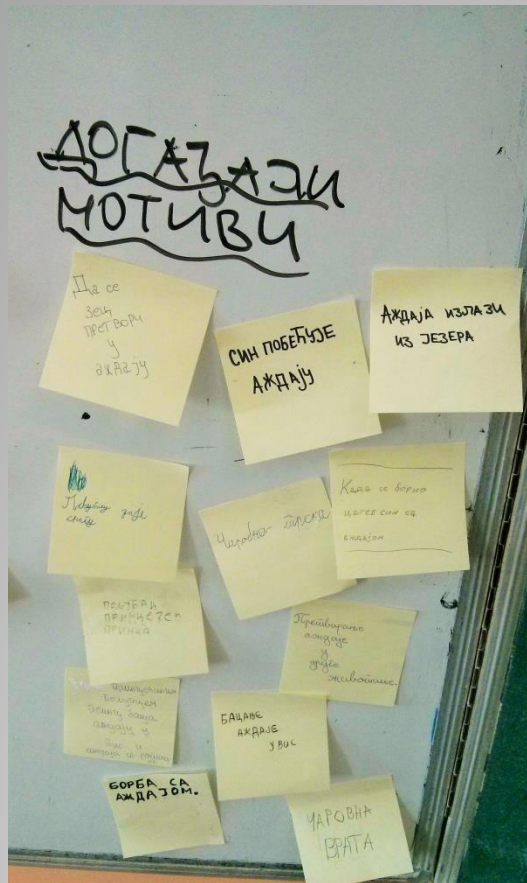 ДОГАЂАЈИ
МОТИВИ
Да се
зец
ПРЕТВОРИ
у
аждају
СИН ПОБЕЂУЈЕ
АЖДАЈУ
АЖДАЈА ИЗЛАЗИ
ИЗ ЈЕЗЕРА
даје
снагу
Чаробна
Када се борио
царев син са
аждајом
ПОЉУБАЦ
ПРИНЦЕЗЕ
ПРИНЦА
Претварање
аждаје
у
друге
животиње
баца
аждају у
вис и
аждаја се
БАЦАЊЕ
АЖДАЈЕ
У ВИС
БОРБА СА
АЖДАЈОМ.
ЧАРОВНА
ВРАТА